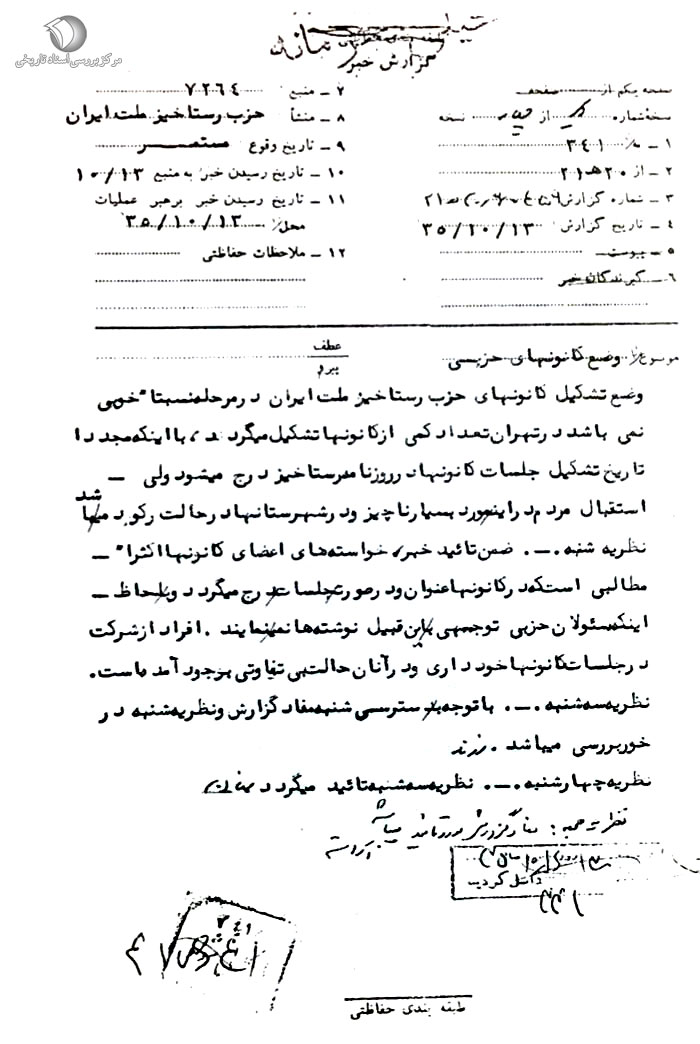 مرکز بررسی اسناد تاریخی
گزارش خبر
صفحه یکم از صفحه
نسخه شماره یک از چهار نسخه
۱ ـ به: ۳۴۱
۲ ـ از ۲۰ هـ ۲۱
۳ ـ شماره گزارش
۴ ـ تاریخ گزارش ۳۵/۱۰/۱۳
۵ ـ پیوست
۶ ـ گیرندگان خبر
۷ ـ منبع ۷۲۶۴
۸ ـ منشأ حزب رستاخیز ملت ایران
۹ ـ تاریخ وقوع مستمر
۱۰ ـ تاریخ رسیدن خبر به منبع ۱۰/۱۳
۱۱ ـ تاریخ رسیدن خبر برهبر عملیات
محل: ۳۵/۱۰/۱۳
۱۲ ـ ملاحظات حفاظتی
موضوع: وضع کانونهای حزبی
عطف
پیرو
وضع تشکیل کانونهای حزب رستاخیز ملت ایران در مرحله نسبتا" خوبی
نمی باشد در تهران تعداد کمی از کانونها تشکیل میگردند، با اینکه مجددا
تاریخ تشکیل جلسات کانونها در روزنامه رستاخیز درج میشود ولی ـ
استقبال مردم در اینمورد بسیار ناچیز و در شهرستانها در حالت رکود میباشد
نظریه شنبه .ـ. ضمن تائید خبر، خواسته‌های اعضای کانونها اکثرا" ـ
مطالبی است که در کانونها عنوان و در صورت جلسات درج میگردد و بلحاظ ـ
اینکه مسئولان حزبی توجهی باین قبیل نوشته‌ها نمینمایند . افراد از شرکت
در جلسات کانونها خودداری و در آنان حالت بی تفاوتی بوجود آمده است.
نظریه سه‌شنبه .ـ. با توجه به دسترسی شنبه مفاد گزارش و نظریه شنبه در
خور بررسی میباشد .
نظریه چهارشنبه .ـ. نظریه سه شنبه تائید میگردد
نظریه جمعه : مفاد گزارش مورد تائید میباشد
طبقه بندی حفاظتی